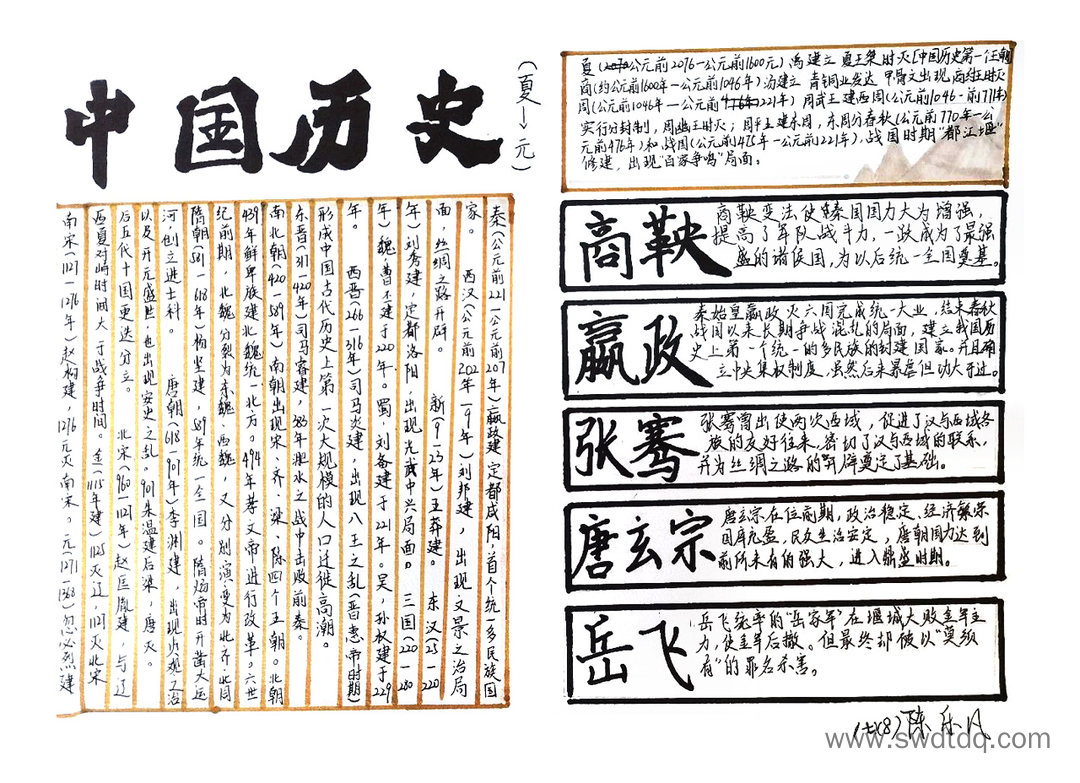 中国历史
（夏→元）
夏（公元前2076-公元前1600元）禹建立 夏王桀时灭「中国历史第一任朝
商（约公元前1600年-公元前1046年）汤建立 青铜业发达 甲骨文出现 商纣王时灭
周（公元前1046年-公元前221年）周武王建西周（公元前1046-前771年）
实行分封制，周幽王时灭；周平王建东周，东周分春秋（公元前770年-公
元前476年）和战国（公元前475年-公元前221年），战国时期"都江堰"
修建，出现"百家争鸣"局面。
秦（公元前221-公元前207年）嬴政建 定都咸阳，首个统一多民族国
家。 西汉（公元前202年-9年）刘邦建，出现文景之治局
面，丝绸之路开辟。 新（9-23年）王莽建。 东汉（25-220
年）刘秀建，定都洛阳，出现光武中兴局面。 三国（220-280
年）魏，曹丕建于220年。蜀，刘备建于221年。吴，孙权建于229
年。 西晋（266-316年）司马炎建，出现八王之乱（晋惠帝时期）
形成中国古代历史上第一次大规模的人口迁徙高潮。
东晋（317-420年）司马睿建，383年淝水之战中击败前秦。
南北朝（420-589年）南朝出现宋、齐、梁、陈四个王朝。北朝
439年鲜卑族建北魏统一北方。494年孝文帝进行改革。六世
纪前期，北魏分裂为东魏、西魏，又分别演变为北齐、北周
隋朝（581-618年）杨坚建，589年统一全国。隋炀帝时开凿大运
河，创立进士科。 唐朝（618-907年）李渊建，出现贞观之治
以及开元盛世，也出现安史之乱。907朱温建后梁，唐灭。
后五代十国更迭分立。 北宋（960-1127年）赵匡胤建，与辽
西夏对峙时间大于战争时间。金（1115年建）1125灭辽，1127灭北宋
南宋（1127-1276年）赵构建，1276元灭南宋。元（1271-1368）忽必烈建
商鞅
商鞅变法使秦国国力大为增强，
提高了军队战斗力，一跃成为了最强
盛的诸侯国，为以后统一全国奠基。
嬴政
秦始皇嬴政灭六国完成统一大业，结束春秋
战国以来长期争战混乱的局面，建立我国历
史上第一个统一的多民族的封建国家。并且确
立中央集权制度，虽然后来暴虐但功大于过。
张骞
张骞曾出使两次西域，促进了汉与西域各
族的友好往来，密切了汉与西域的联系，
并为丝绸之路的开辟奠定了基础。
唐玄宗
唐玄宗在位前期，政治稳定、经济繁荣
国库充盈，民众生活安定，唐朝国力达到
前所未有的强大，进入鼎盛时期。
岳飞
岳飞统率的"岳家军"在郾城大败金军主
力，使金军后撤。但最终却被以"莫须
有"的罪名杀害。
七(8) 陈乐凡
www.swdtdq.com